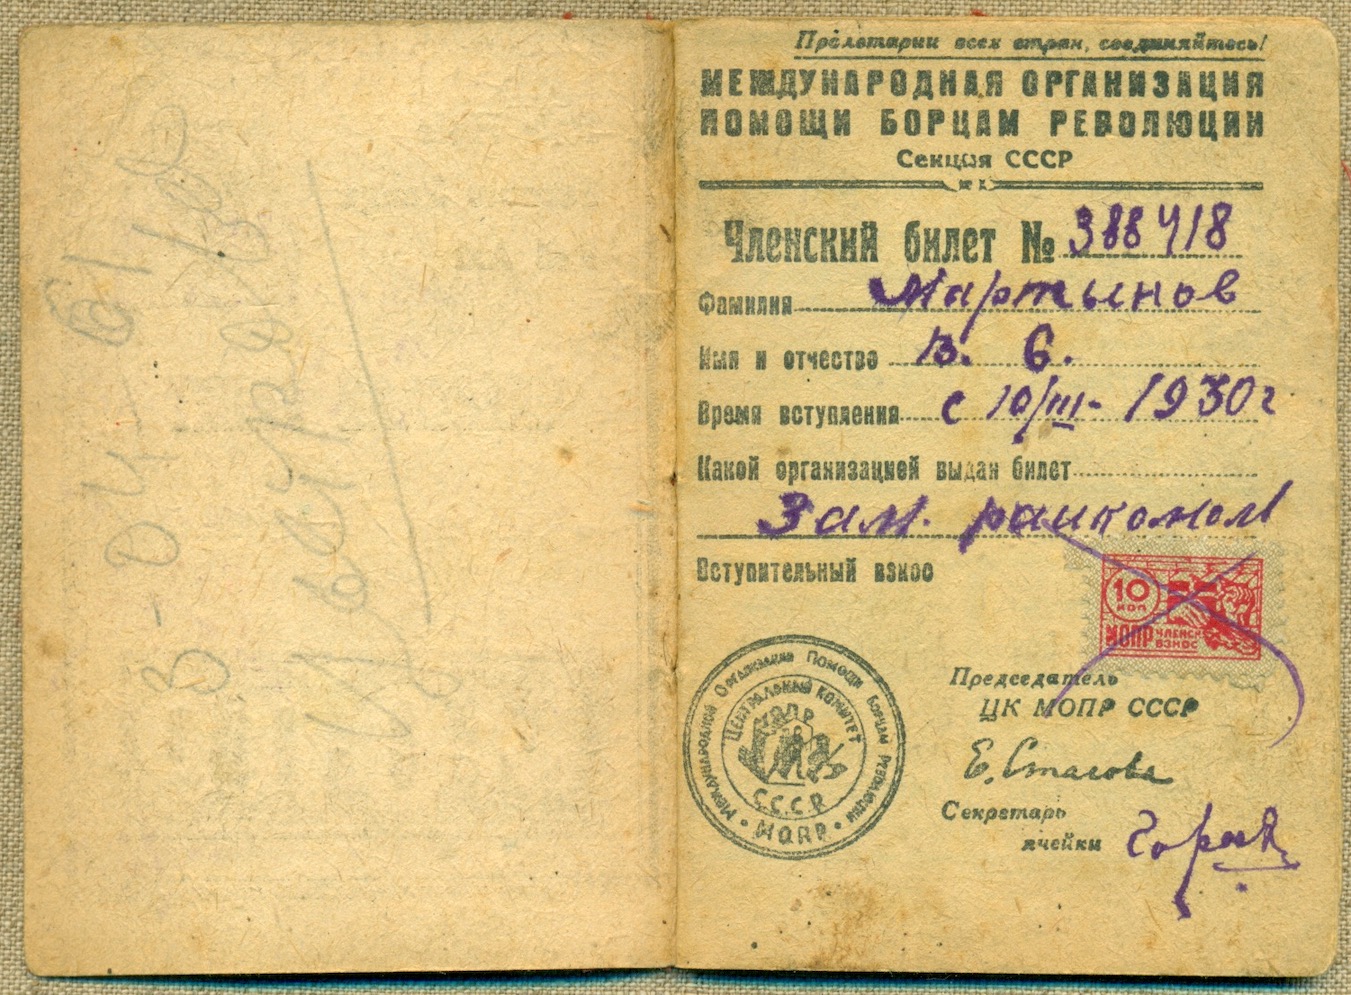 Пролетарии всех стран, соединяйтесь!
МЕЖДУНАРОДНАЯ ОРГАНИЗАЦИЯ
ПОМОЩИ БОРЦАМ РЕВОЛЮЦИИ
Секция СССР
Членский билет № 388418
Фамилия Мартынов
Имя и отчество В. С.
Время вступления с 10/III- 1930г
Какой организацией выдан билет
Зам. райкомом
Вступительный взнос
10
КОП
МОПР ЧЛЕНСК
ВЗНОС
Международной Организации Помощи Борцам Революции
ЦЕНТРАЛЬНЫЙ КОМИТЕТ
МОПР
С.С.С.Р.
МОПР
Председатель
ЦК МОПР СССР
Е. Стасова
Секретарь
ячейки